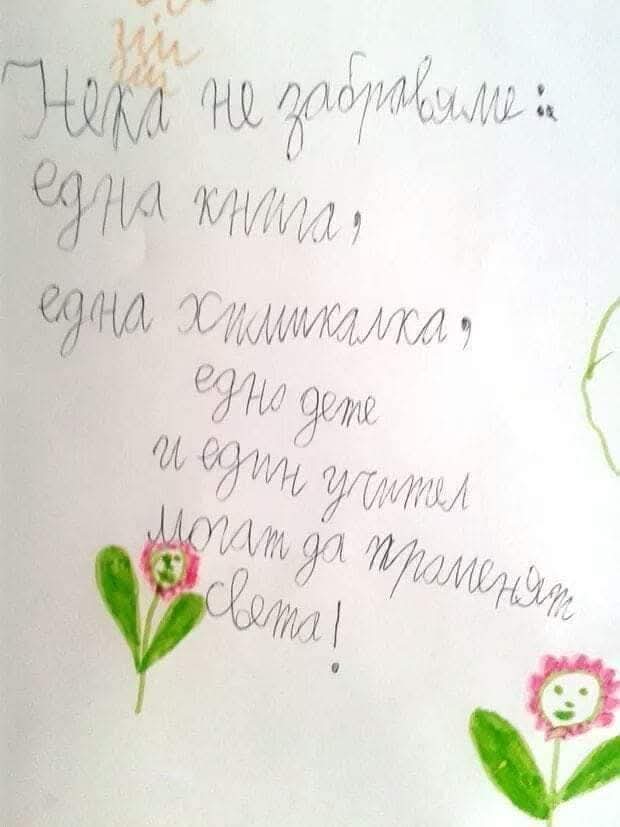 Нека не забравяме:
една книга,
една химикалка,
едно дете
и един учител
могат да променят
света!